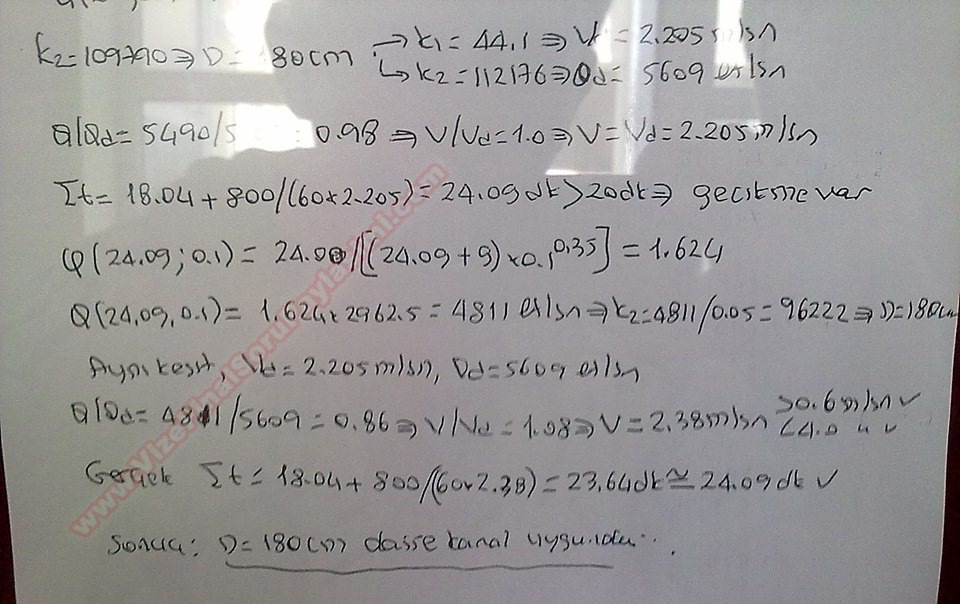 k2=109790⇒D=180cm →k1=44.1⇒Vd=2.205m/sn
↳k2=112176⇒Qd=5609 lt/sn
Q/Qd=5490/5 0.98⇒V/Vd=1.0⇒V=Vd=2.205m/sn
Σt=18.04+800/(60x2.205)=24.09dk>20dk⇒ gecikme var
φ(24.09;0.1)=24.00/[(24.09+9)x0.1^0.35]=1.624
Q(24.09,0.1)=1.624x2962.5=4811 lt/sn⇒k2=4811/0.05=96222⇒D=180cm
Aynı kesit, Vd=2.205m/sn, Qd=5609 lt/sn
Q/Qd=4811/5609=0.86⇒V/Vd=1.08⇒V=2.38m/sn >0.6m/sn ✓
<4.0 " ✓
Gerçek Σt=18.04+800/(60x2.38)=23.64dk≅24.09dk ✓
Sonuç: D=180cm dasse kanal uygundur.
www.VizeFinalSoruPaylasimi.com